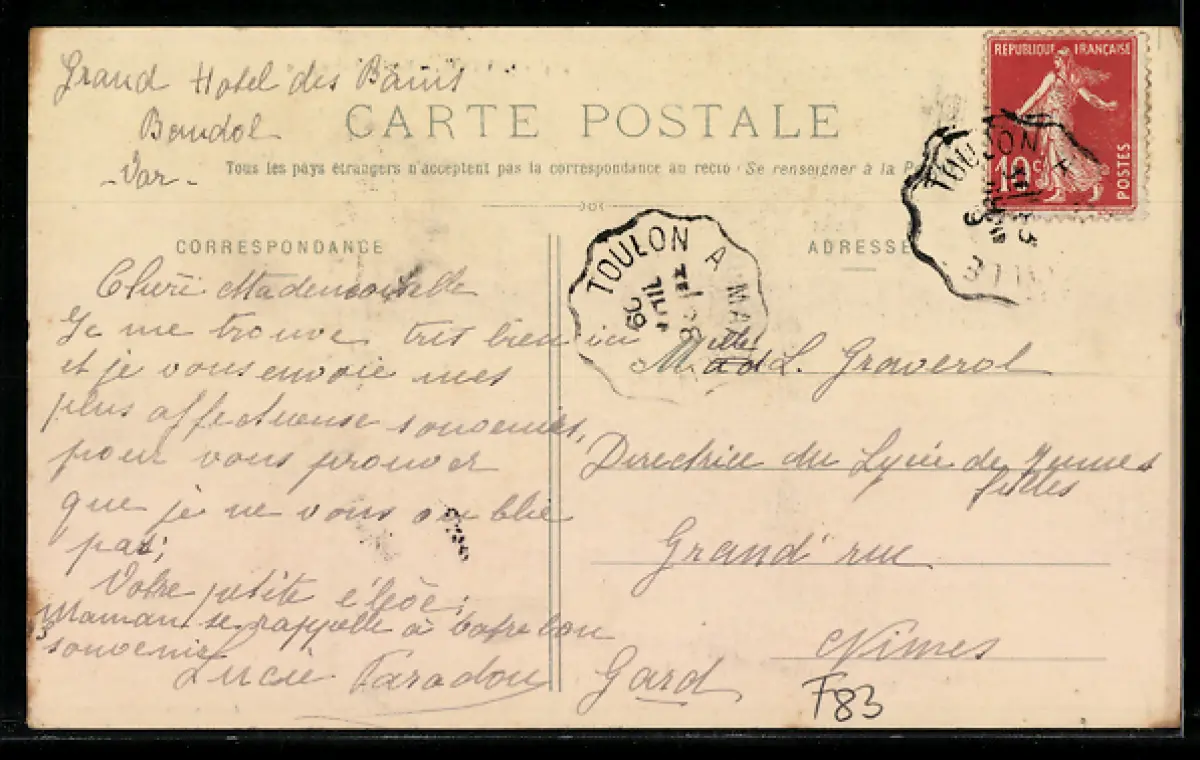 Grand Hotel des Bains
Bandol
- Var -
CARTE POSTALE
Tous les pays étrangers n'acceptent pas la correspondance au recto (Se renseigner à la P
CORRESPONDANCE
ADRESSE
REPUBLIQUE FRANÇAISE
10c
POSTES
TOULON A
TOULON A MA
Cheri Mademoiselle
Je me trouve très bien ici
et je vous envoie mes
plus affectueuse souvenirs,
pour vous prouver
que je ne vous oublie
pas;
Votre petite élève;
Maman se rappelle à votre bon
souvenir
Lucie Paradou
Melle L. Graverol
Directrice du Lycée de Jeunes
filles
Grand' rue
Nimes
Gard
F83